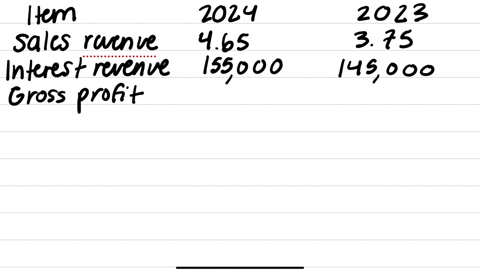 Item 2024 2023
Sales ravenue 4.65 3.75
Interest revenue 155,000 145,000
Gross profit